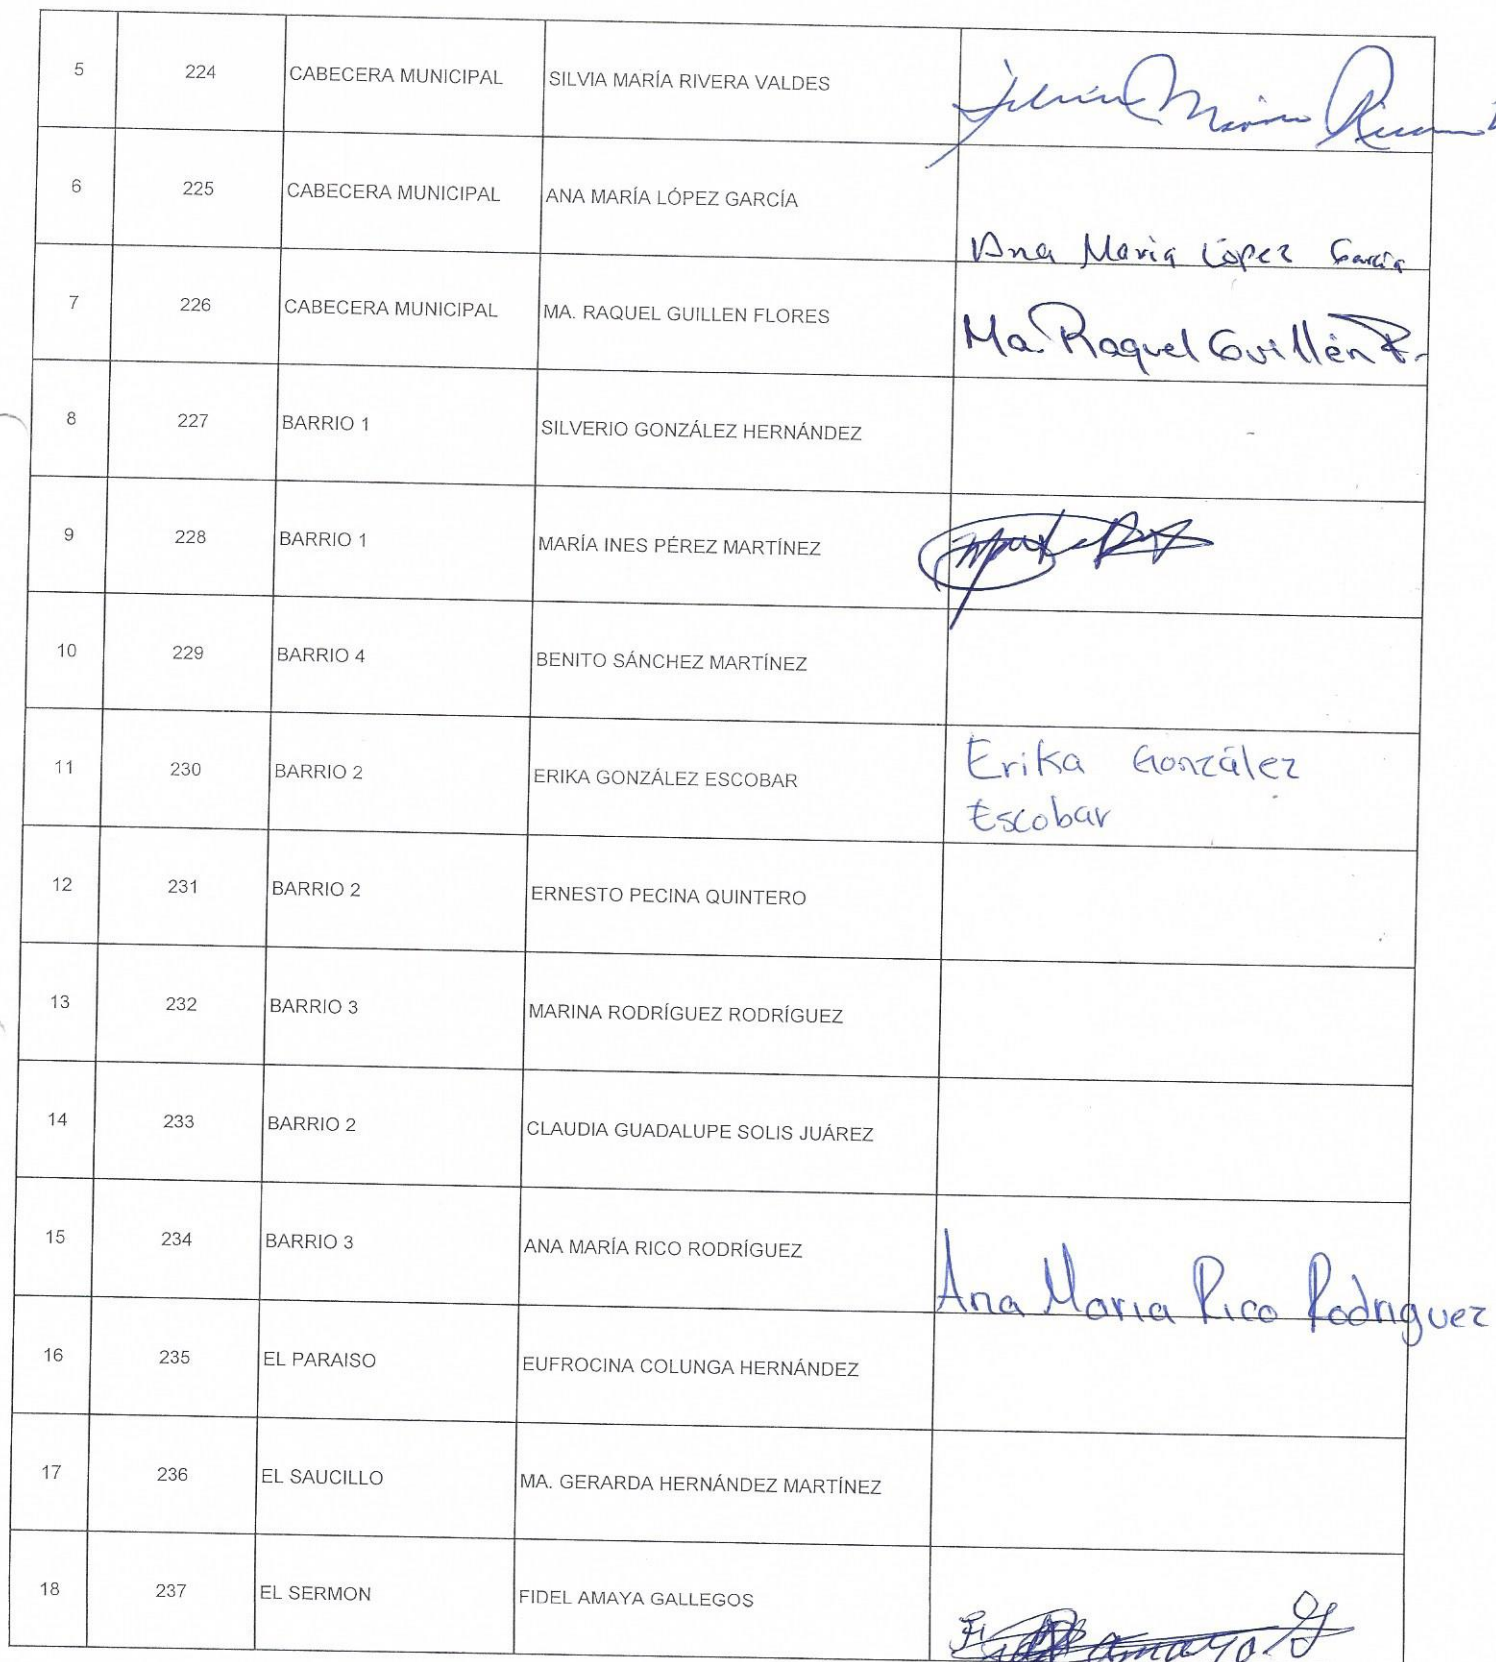 5 224 CABECERA MUNICIPAL SILVIA MARÍA RIVERA VALDES
6 225 CABECERA MUNICIPAL ANA MARÍA LÓPEZ GARCÍA Ana María López García
7 226 CABECERA MUNICIPAL MA. RAQUEL GUILLEN FLORES Ma. Raquel Guillén F.
8 227 BARRIO 1 SILVERIO GONZÁLEZ HERNÁNDEZ
9 228 BARRIO 1 MARÍA INES PÉREZ MARTÍNEZ
10 229 BARRIO 4 BENITO SÁNCHEZ MARTÍNEZ
11 230 BARRIO 2 ERIKA GONZÁLEZ ESCOBAR Erika González
Escobar
12 231 BARRIO 2 ERNESTO PECINA QUINTERO
13 232 BARRIO 3 MARINA RODRÍGUEZ RODRÍGUEZ
14 233 BARRIO 2 CLAUDIA GUADALUPE SOLIS JUÁREZ
15 234 BARRIO 3 ANA MARÍA RICO RODRÍGUEZ Ana Maria Rico Rodriguez
16 235 EL PARAISO EUFROCINA COLUNGA HERNÁNDEZ
17 236 EL SAUCILLO MA. GERARDA HERNÁNDEZ MARTÍNEZ
18 237 EL SERMON FIDEL AMAYA GALLEGOS